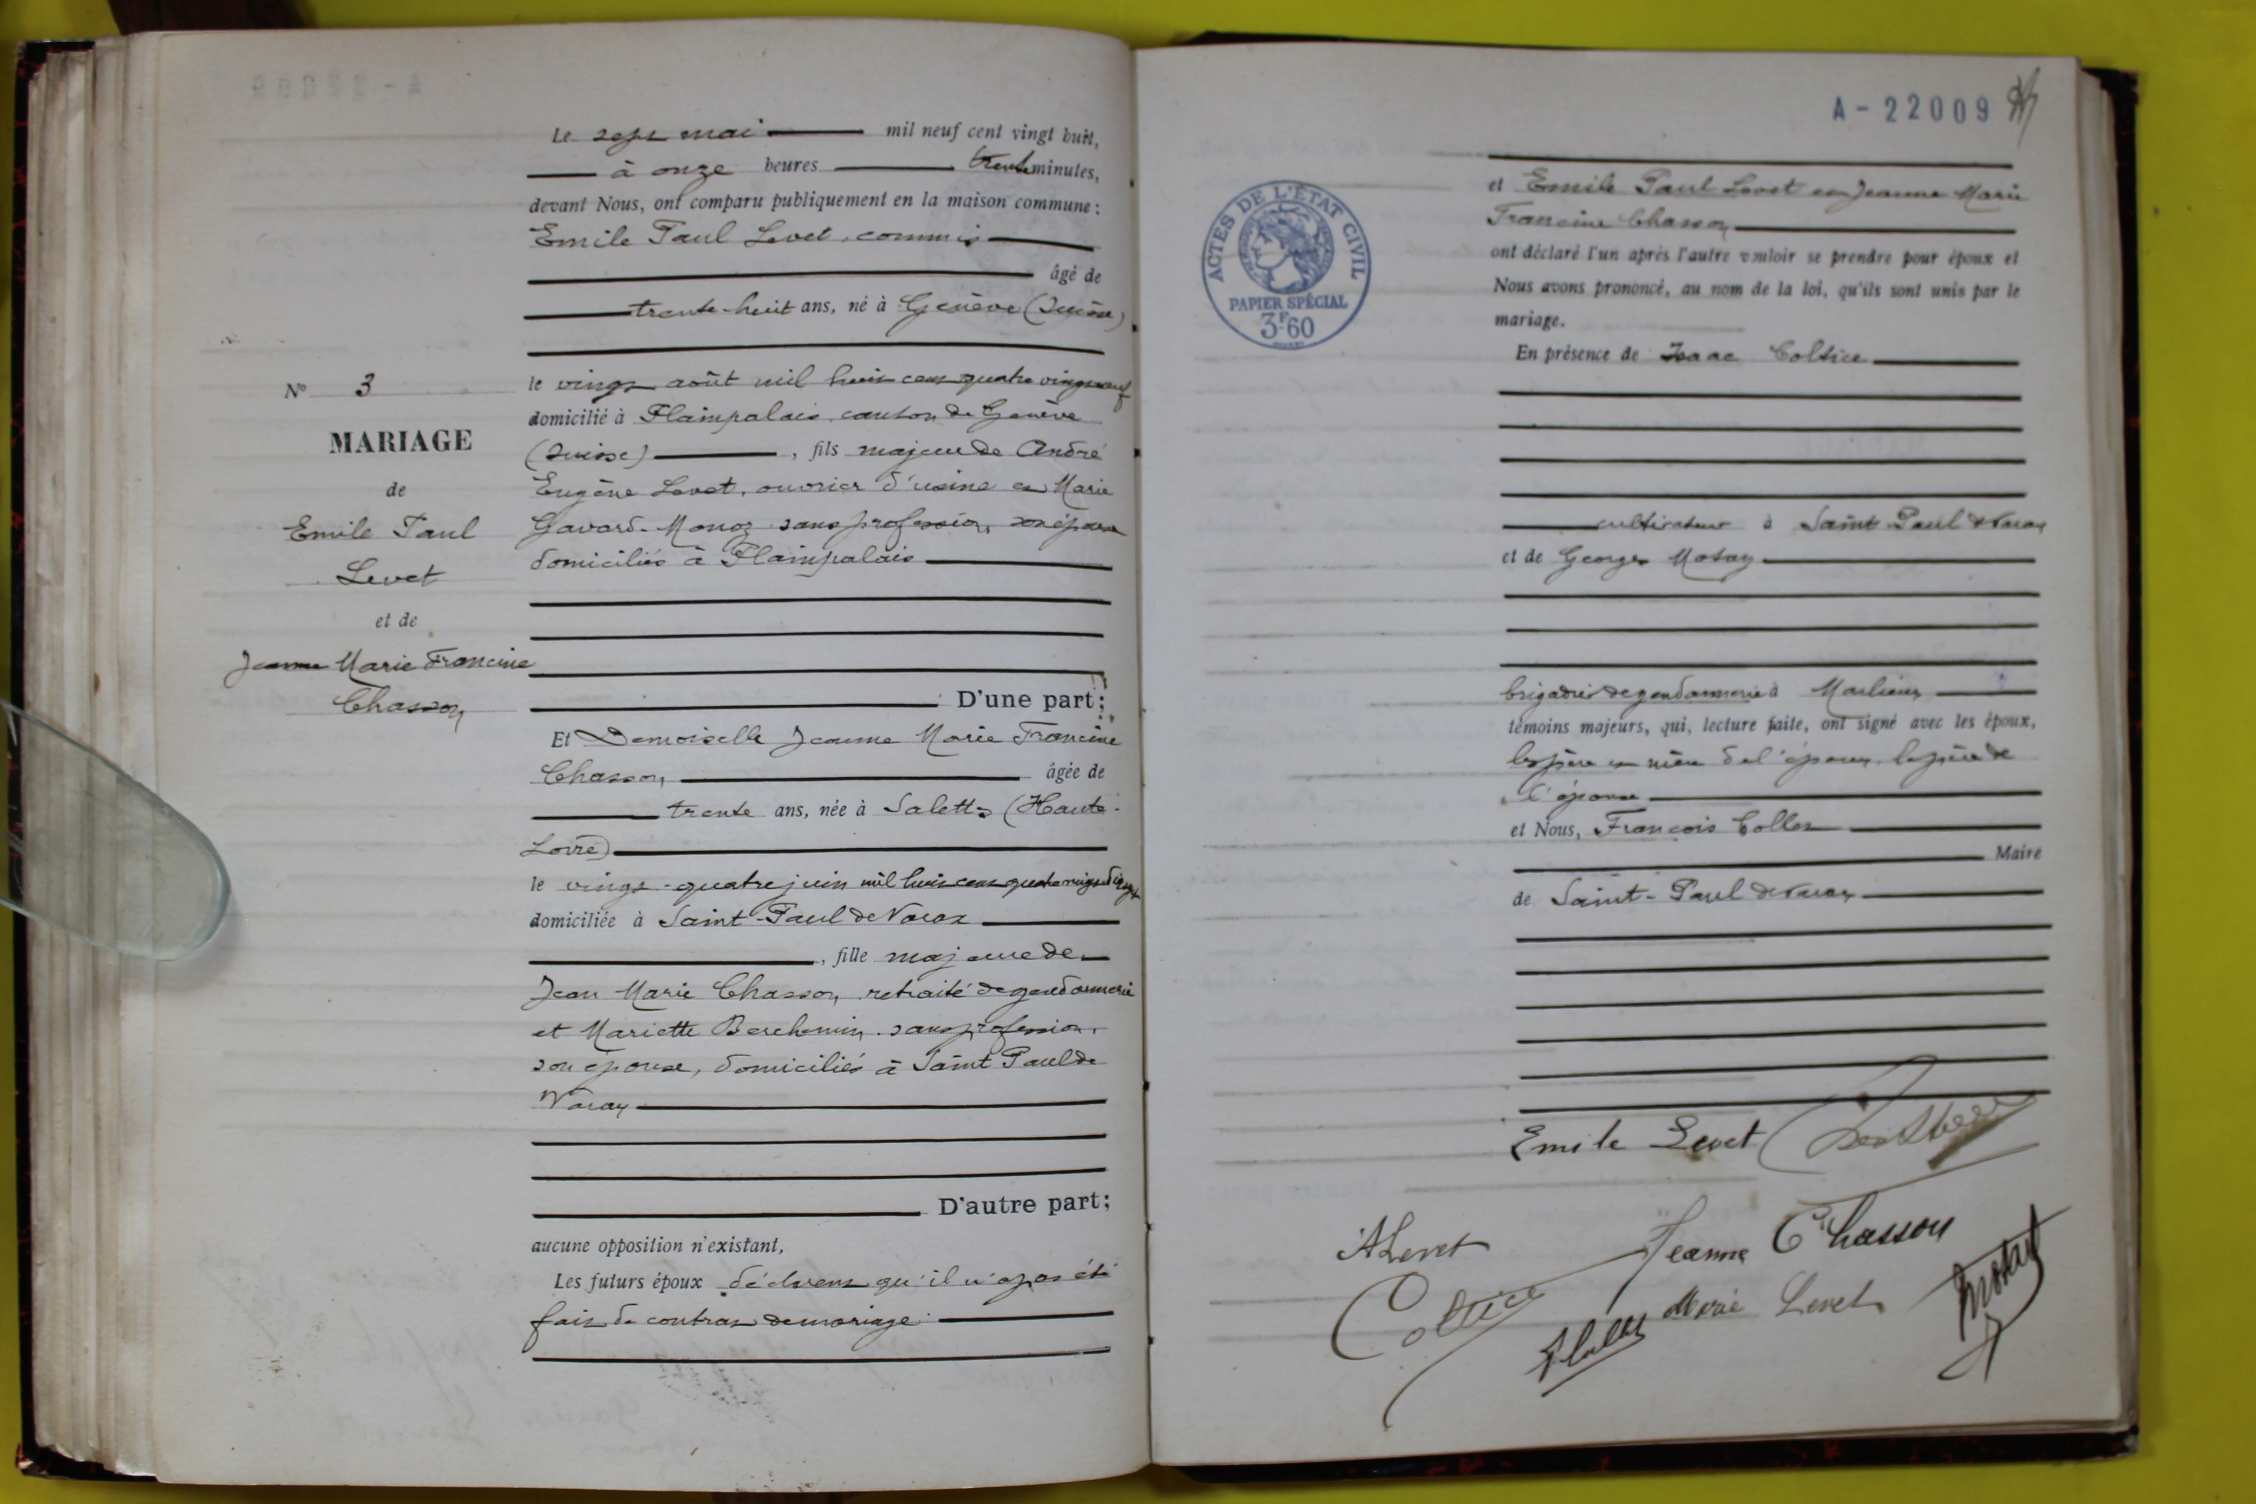 Le sept mai mil neuf cent vingt huit,
à onze heures trente minutes,
devant Nous, ont comparu publiquement en la maison commune :
Emile Paul Levet, commis
âgé de
trente-huit ans, né à Genève (Suisse)
le vingt août mil huit cent quatre vingt neuf
domicilié à Plainpalais, canton de Genève
(Suisse) , fils majeur de André
Eugène Levet, ouvrier d'usine et Marie
Gavard-Monoz sans profession, son épouse
domiciliés à Plainpalais
D'une part ;
Nº 3
MARIAGE
de
Emile Paul
Levet
et de
Jeanne Marie Francine
Chasson
Et Demoiselle Jeanne Marie Francine
Chasson, âgée de
trente ans, née à Salettes (Haute-
Loire)
le vingt-quatre juin mil huit cent quatre vingt dix sept
domiciliée à Saint-Paul de Varax
, fille majeure de
Jean Marie Chasson, retraité de gendarmerie
et Mariette Berchemin, sans profession,
son épouse, domiciliés à Saint Paul de
Varax
D'autre part ;
aucune opposition n'existant,
Les futurs époux déclarent qu'il n'a pas été
fait de contrat de mariage
A-22009
ACTES DE L'ÉTAT CIVIL
PAPIER SPÉCIAL
3F.60
et Emile Paul Levet et Jeanne Marie
Francine Chasson
ont déclaré l'un après l'autre vouloir se prendre pour époux et
Nous avons prononcé, au nom de la loi, qu'ils sont unis par le
mariage.
En présence de Isaac Coltice
cultivateur à Saint Paul de Varax
et de Georges Motay
brigadier de gendarmerie à Marlieux
témoins majeurs, qui, lecture faite, ont signé avec les époux,
les père et mère de l'époux, le père de
l'épouse
et Nous, François Collet
Maire
de Saint-Paul de Varax
Emile Levet
A Levet
Jeanne Chasson
Coltice
Marie Levet